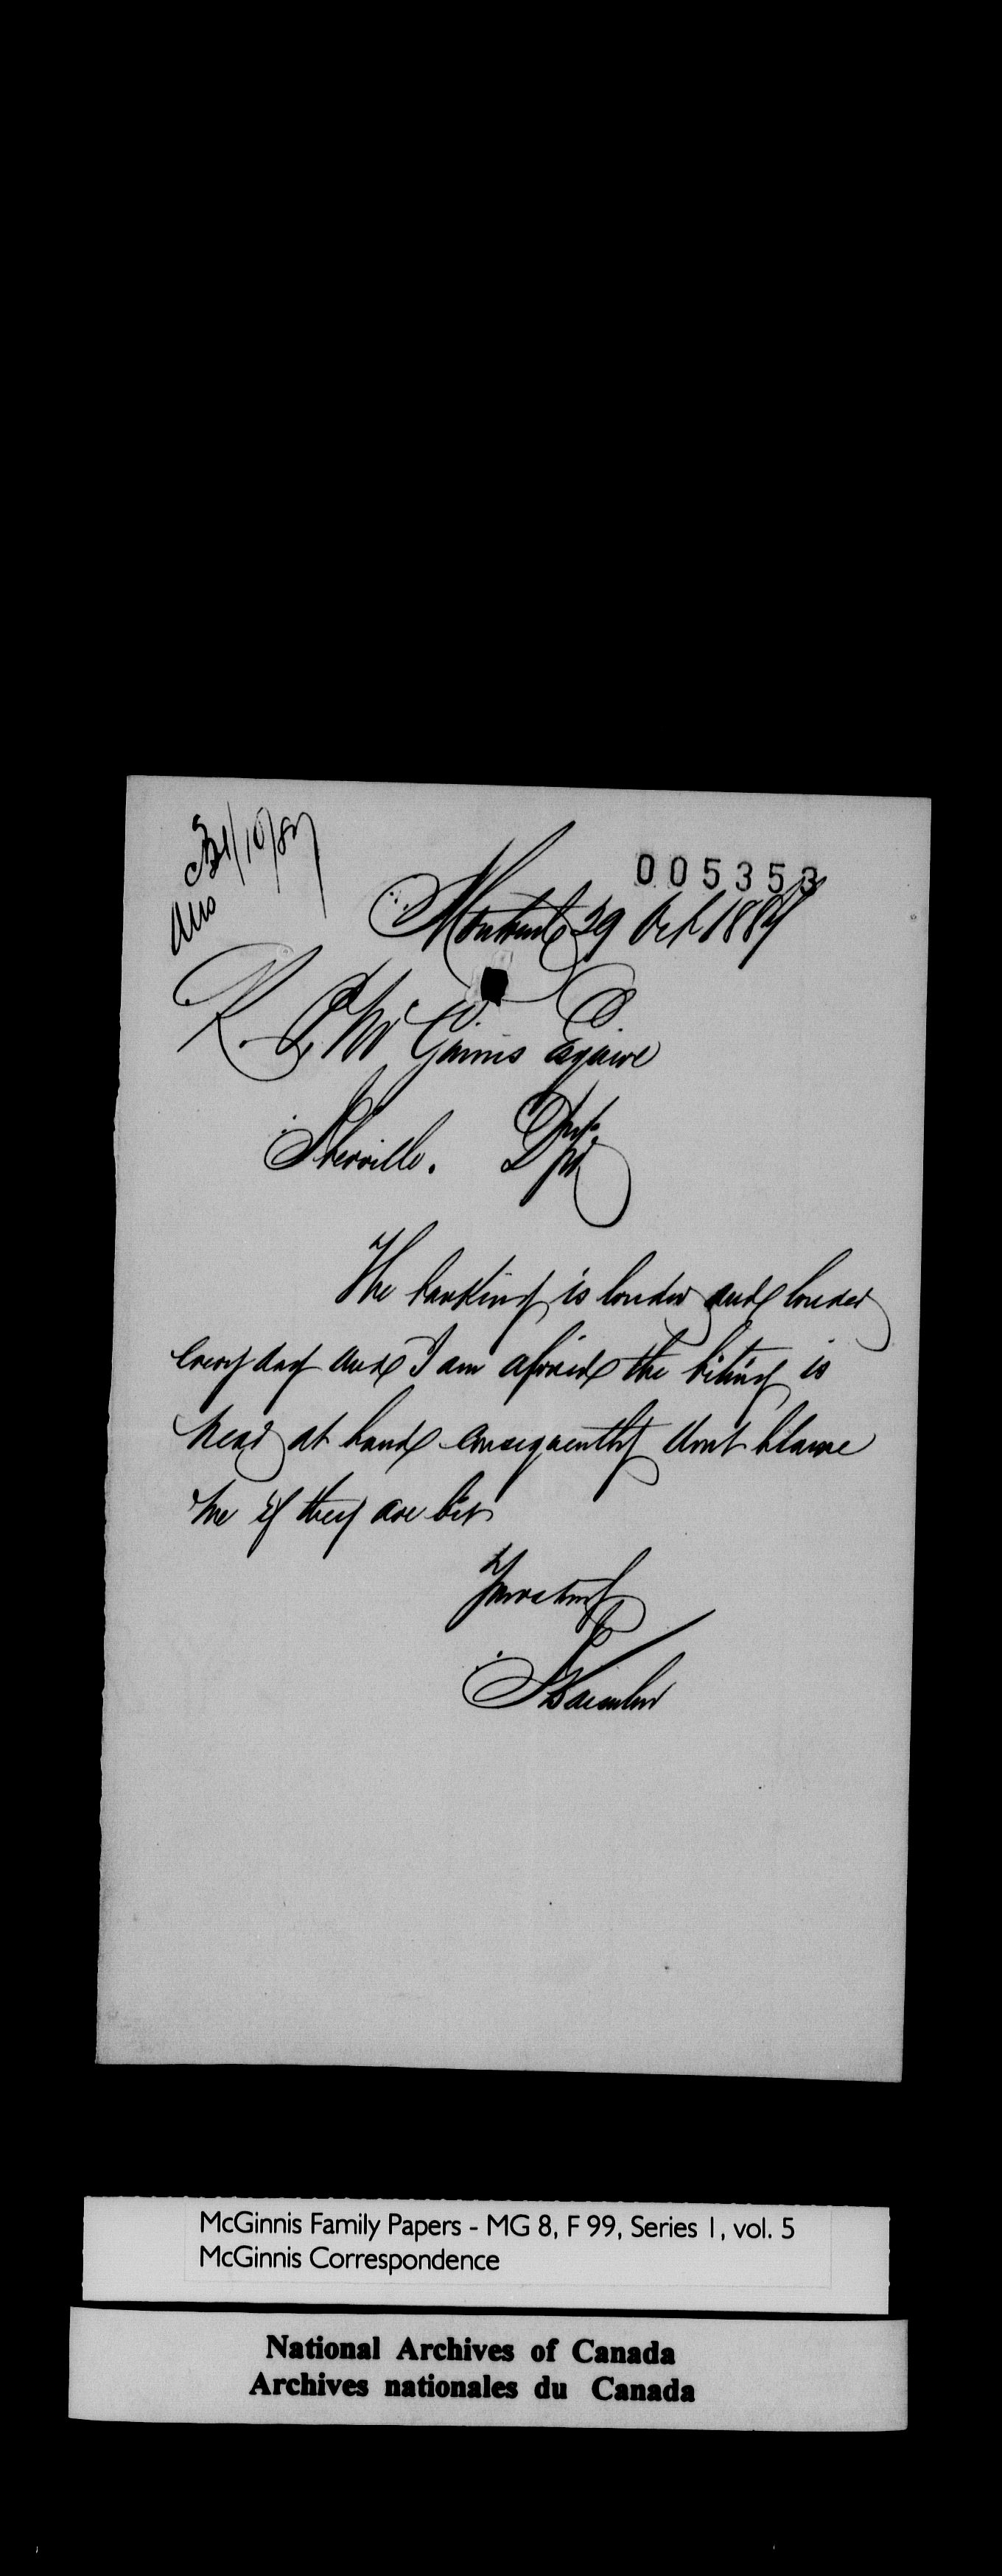 Ans 31/10/87
005353
Montreal 29 Oct 1887
R. McGinnis Esquire
Iberville.
The barking is louder and louder
every day and I am afraid the biting is
near at hand consequently dont blame
me if they are bit
Yours truly
McGinnis Family Papers - MG 8, F 99, Series 1, vol. 5
McGinnis Correspondence
National Archives of Canada
Archives nationales du Canada